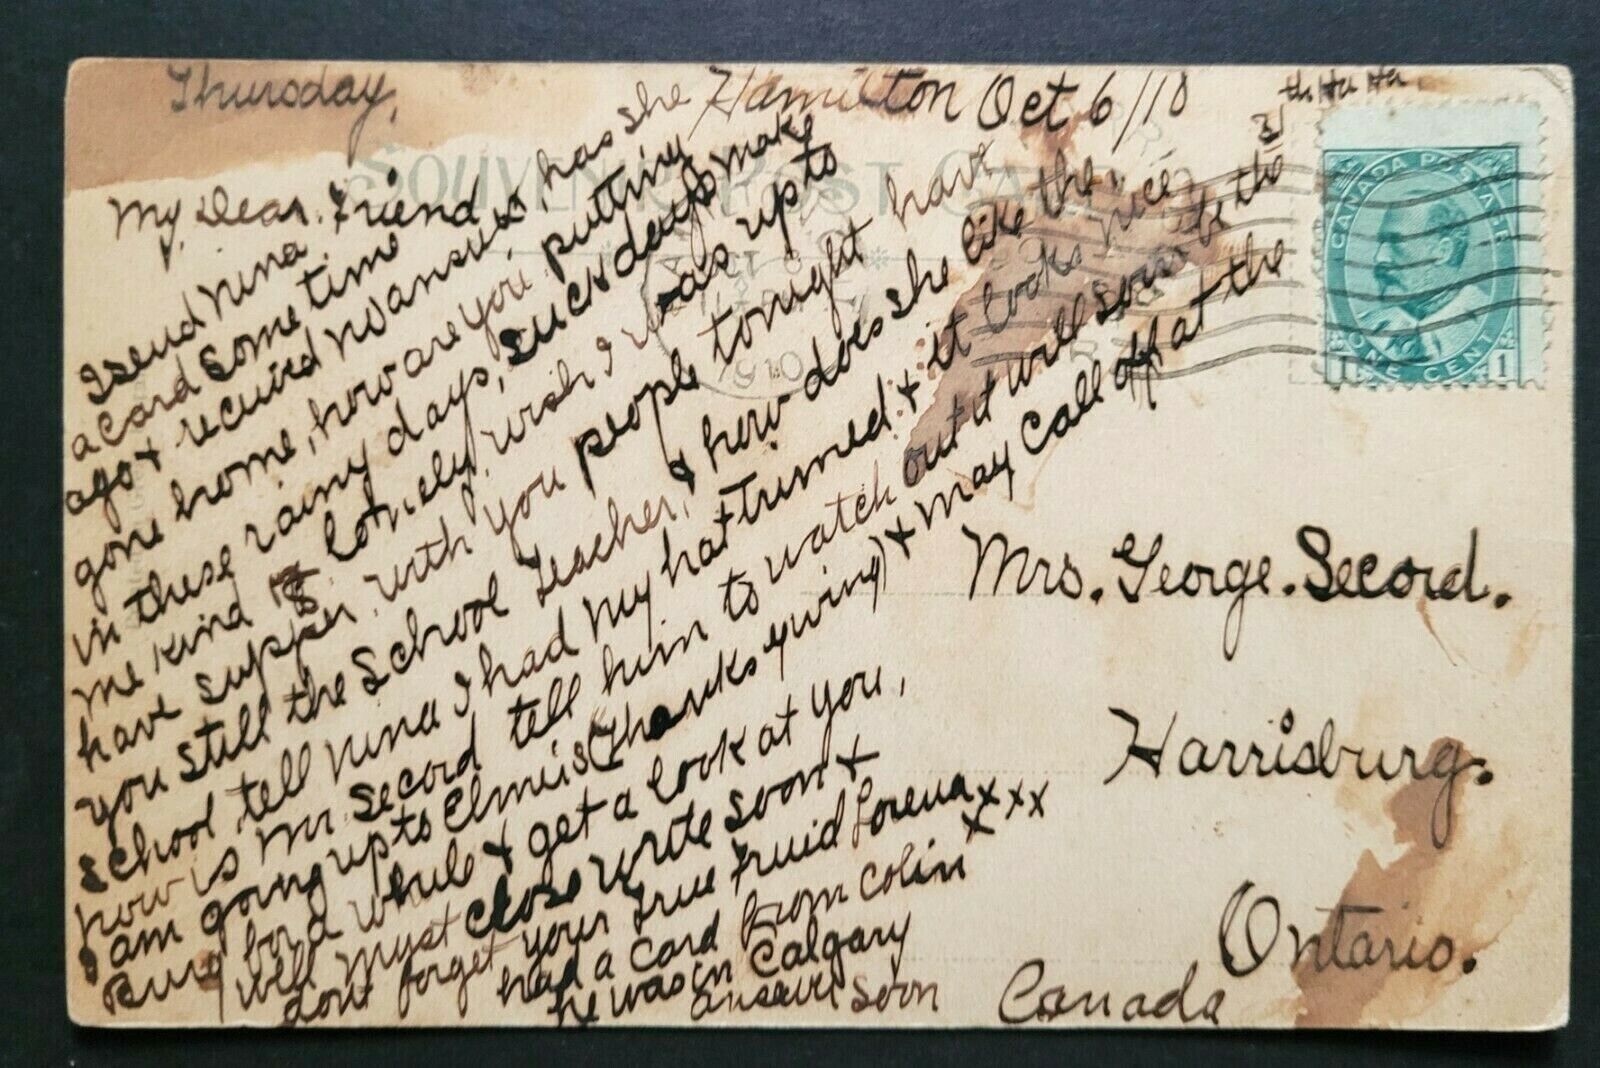 Thursday,
Hamilton Oct 6/10
SOUVENIR POST CARD
CANADA POSTAGE
1 ONE CENT 1
My Dear Friend
I send Nina
a card some time
ago & recuied no answer, has she
gone home, how are you putting
in these rainy days, such days make
me kind of lonely, wish I was up to
have supper with you people tonight have
you still the School Teacher, & how does she like the
School, tell Nina I had my hat trimed & it looks nice,
how is Mr. Secord tell him to watch out it will soon be the
31th Ha Ha,
I am going up to (Thanksgiving) & may call off at the
Burg for a while & get a look at you,
well must close write soon &
dont forget your true Fruid Lorena xxx
xxx
had a card from Colin
he was in Calgary
answer soon
Mrs. George. Secord.
Harrisburg.
Ontario.
Canada